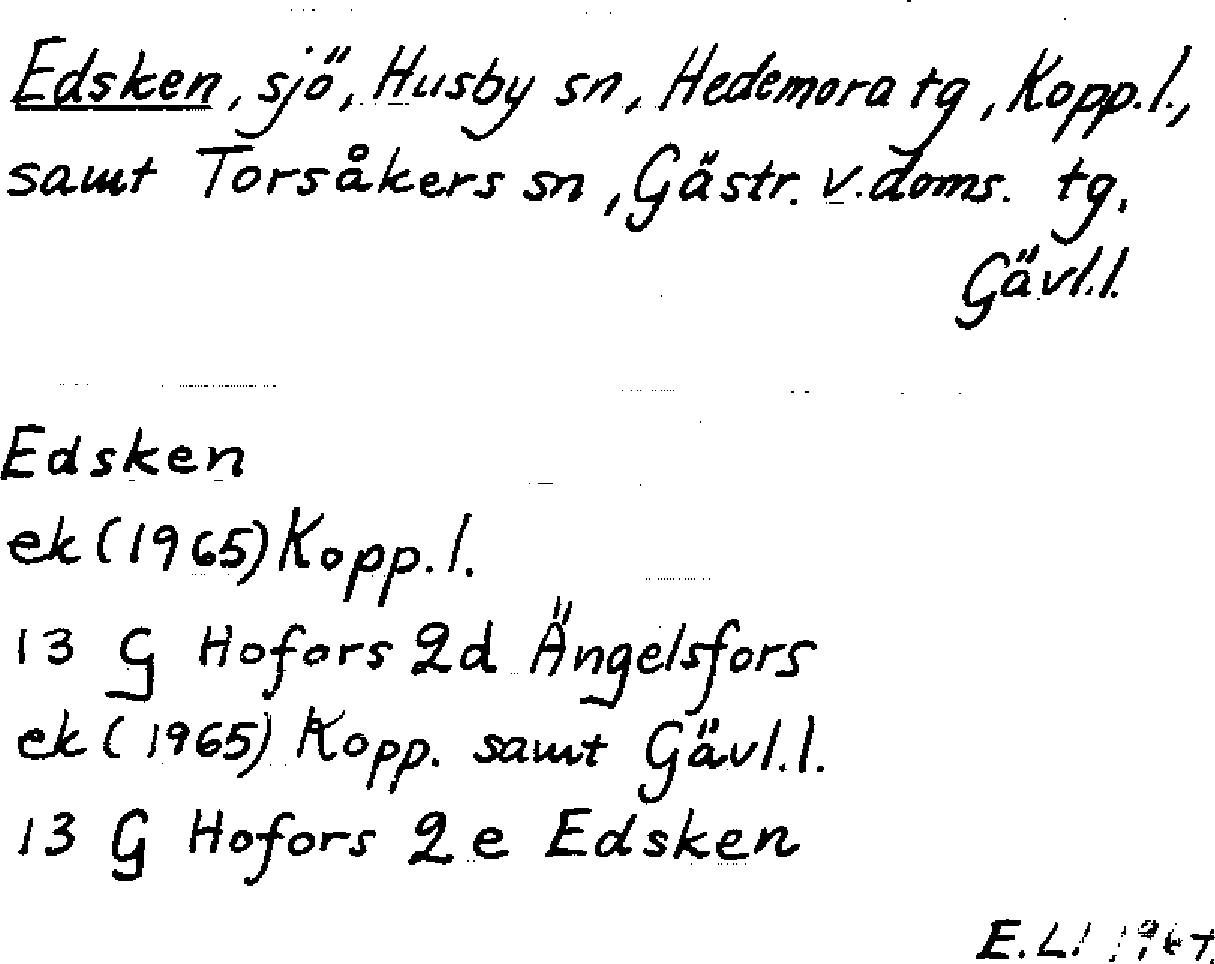 Edsken, sjö, Husby sn, Hedemora tg, Kopp.l.,
samt Torsåkers sn, Gästr. v.doms. tg.
Gävl.l.
Edsken
ek (1965) Kopp.l.
13 G Hofors 2d Ängelsfors
ek (1965) Kopp. samt Gävl.l.
13 G Hofors 2e Edsken